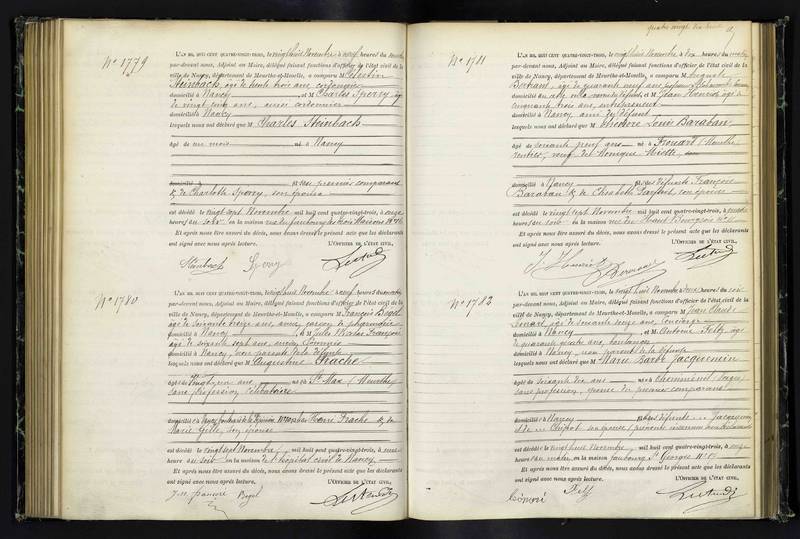 quatre vingt
No 1779
L'AN MIL HUIT CENT QUATRE-VINGT-TROIS, le vingt huit Novembre à neuf heures du
par-devant nous, Adjoint au Maire, délégué faisant fonctions d'officier de l'état civil de la
ville de Nancy, département de Meurthe-et-Moselle, a comparu M. Célestin
Steinbach, âgé de trente trois ans, cordonnier
domicilié à Nancy et M Charles Sperry, âgé
de vingt cinq ans, aussi cordonnier
domicilié à Nancy
lesquels nous ont déclaré que M Charles Steinbach
âgé de un mois né à Nancy
fils du premier comparant
& de Charlotte Sperry, son épouse
est décédé le vingt sept Novembre mil huit cent quatre-vingt-trois, à onze
heures du soir en la maison rue du faubourg des trois Maisons No
Et après nous être assuré du décès, nous avons dressé le présent acte que les déclarants
ont signé avec nous après lecture. L'OFFICIER DE L'ÉTAT CIVIL,
Steinbach Sperry
No 1780
L'AN MIL HUIT CENT QUATRE-VINGT-TROIS, le vingt huit Novembre à neuf heures du
par-devant nous, Adjoint au Maire, délégué faisant fonctions d'officier de l'état civil de la
ville de Nancy, département de Meurthe-et-Moselle, a comparu M. François Bigel
âgé de soixante treize ans, ancien garçon de pharmacie
domicilié à Nancy & M Jules Nicolas François
âgé de soixante sept ans, ancien
domicilié à Nancy, non parents de la défunte
lesquels nous ont déclaré que M Augustine Frache
âgée de vingt un ans née à St Max (Meurthe)
sans profession, célibataire
domiciliée à Nancy
Marie Gille, son épouse
est décédée le vingt sept Novembre mil huit cent quatre-vingt-trois, à
heures du soir en la maison de l'hôpital civil de Nancy
Et après nous être assuré du décès, nous avons dressé le présent acte que les déclarants
ont signé avec nous après lecture. L'OFFICIER DE L'ÉTAT CIVIL,
Bigel
No 1781
L'AN MIL HUIT CENT QUATRE-VINGT-TROIS, le vingt huit Novembre à dix heures du
par-devant nous, Adjoint au Maire, délégué faisant fonctions d'officier de l'état civil de la
ville de Nancy, département de Meurthe-et-Moselle, a comparu M. Auguste
Bertram, âgé de quarante neuf ans
M Jean Henriot, âgé de
cinquante trois ans, entrepreneur
domicilié à Nancy amis du défunt
lesquels nous ont déclaré que M Théodore Louis Baraban
âgé de soixante neuf ans né à Frouard (Meurthe
rentier, veuf de Monique Miette
domicilié à Nancy fils de défunts François
Baraban & de Elisabeth son épouse
est décédé le vingt sept Novembre mil huit cent quatre-vingt-trois, à
heures du soir en la maison rue du Haut Bourgeois No
Et après nous être assuré du décès, nous avons dressé le présent acte que les déclarants
ont signé avec nous après lecture. L'OFFICIER DE L'ÉTAT CIVIL,
No 1782
L'AN MIL HUIT CENT QUATRE-VINGT-TROIS, le vingt huit Novembre à deux heures du soir
par-devant nous, Adjoint au Maire, délégué faisant fonctions d'officier de l'état civil de la
ville de Nancy, département de Meurthe-et-Moselle, a comparu M. Jean Claude
âgé de soixante onze ans, Concierge
domicilié à Nancy et M Antoine Feltz, âgé
de quarante quatre ans, boulanger
domicilié à Nancy, non parent de la défunte
lesquels nous ont déclaré que M Marie Barbe Jacquemin
âgée de soixante dix ans née à Chemménil Vosges
sans profession, épouse du premier comparant
domiciliée à Nancy fille de défunts Jacquemin
est décédée le vingt huit Novembre, mil huit cent quatre-vingt-trois, à onze
heures du matin en la maison faubourg St Georges No
Et après nous être assuré du décès, nous avons dressé le présent acte que les déclarants
ont signé avec nous après lecture. L'OFFICIER DE L'ÉTAT CIVIL,